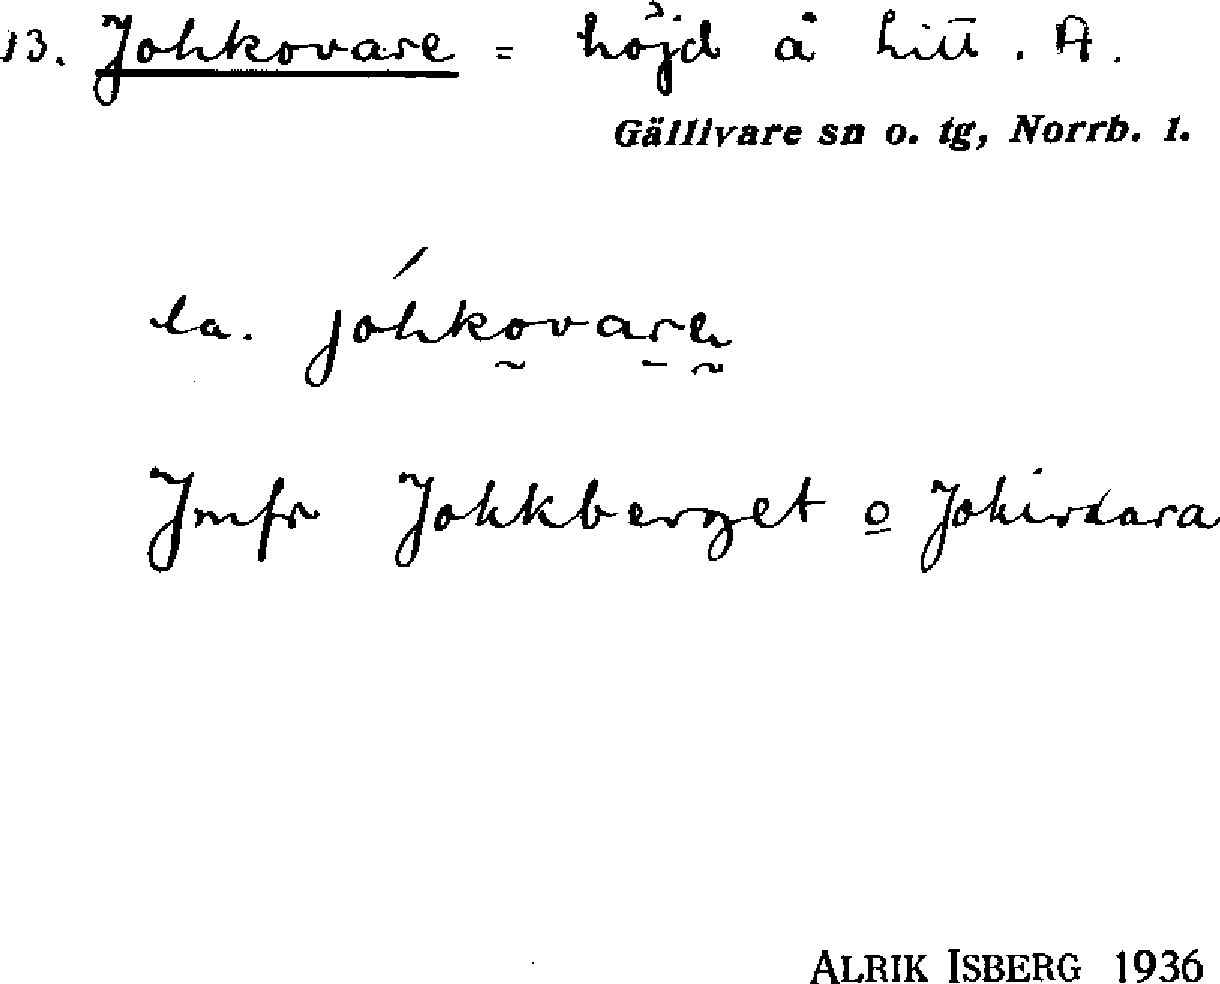 13. Johkovare = höjd å litt. A.
Gällivare sn o. tg, Norrb. 1.
la. jóhkovare
Jmfr Jokkberget o
ALRIK ISBERG 1936